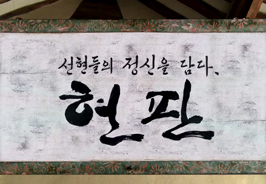 선현들의 정신을 담다,
현판